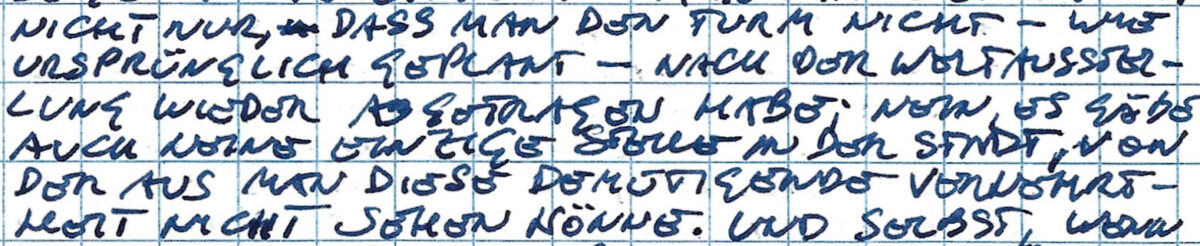 NICHT NUR, DASS MAN DEN TURM NICHT – WIE
URSPRÜNGLICH GEPLANT – NACH DER WELTAUSSTEL-
LUNG WIEDER ABGETRAGEN HABE; NEIN, ES GÄBE
AUCH KEINE EINZIGE STELLE IN DER STADT, VON
DER AUS MAN DIESE DEMÜTIGENDE VERKEHRT-
HEIT NICHT SEHEN KÖNNE. UND SELBST, WENN